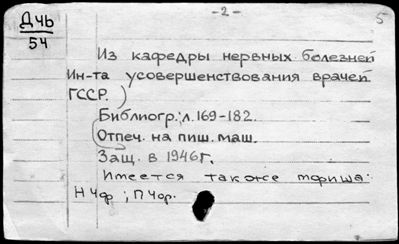 ДЧЬ
54
- 2 -
5
Из кафедры нервных болезней
Ин-та усовершенствования врачей
ГССР.)
Библиогр: л. 169-182.
Отпеч. на пиш. маш.
Защ. в 1946 г.
Имеется также
НЧФ ; ПЧор.